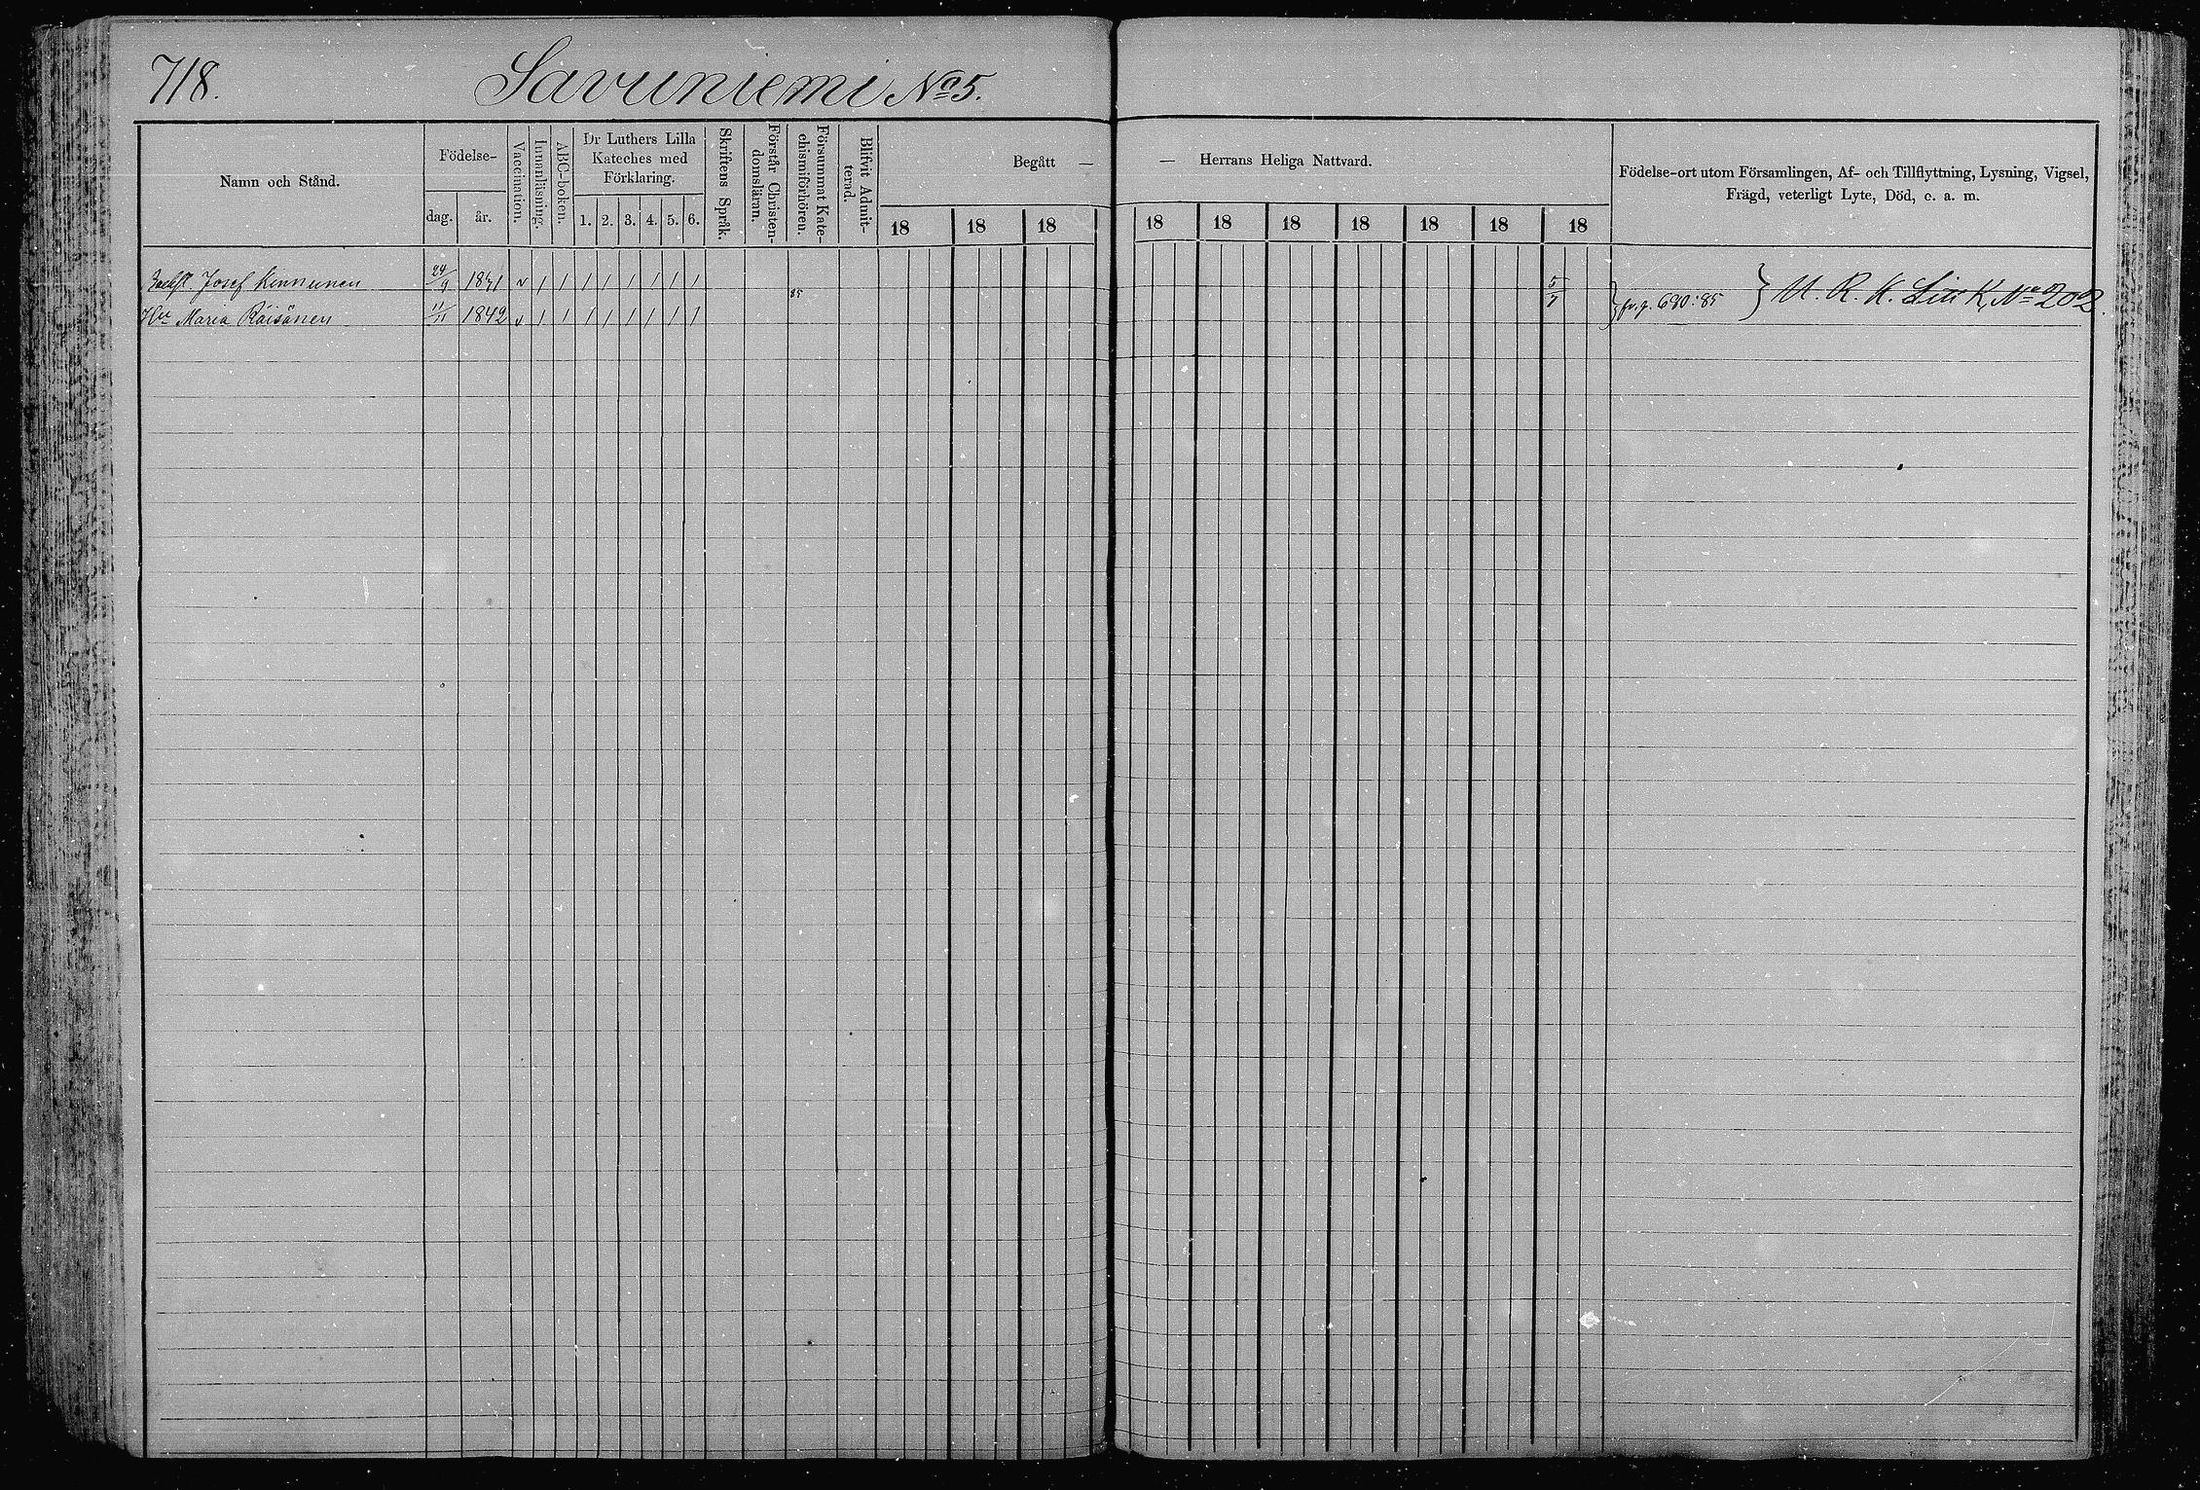 718.
Savuniemi No 5.
Namn och Stånd.
Födelse-
dag.
år.
Vaccination.
Innanläsning.
ABC-boken.
Dr Luthers Lilla
Kateches med
Förklaring.
1. 2. 3. 4. 5. 6.
Skriftens Språk.
Förstår Christen-
domsläran.
Försummat Kate-
chismiförhören.
Blifvit Admit-
terad.
Begått —
18 18 18
— Herrans Heliga Nattvard.
18 18 18 18 18 18 18
Födelse-ort utom Församlingen, Af- och Tillflyttning, Lysning, Vigsel,
Frägd, veterligt Lyte, Död, e. a. m.
Josef Kinnunen 24/9 1841 v / / / / / / / / 85 5/7 fr. p. 690:85 U. R. K. Litt K, No 202.
Hu Maria Räisänen 11/1 1842 v / / / / / / / /